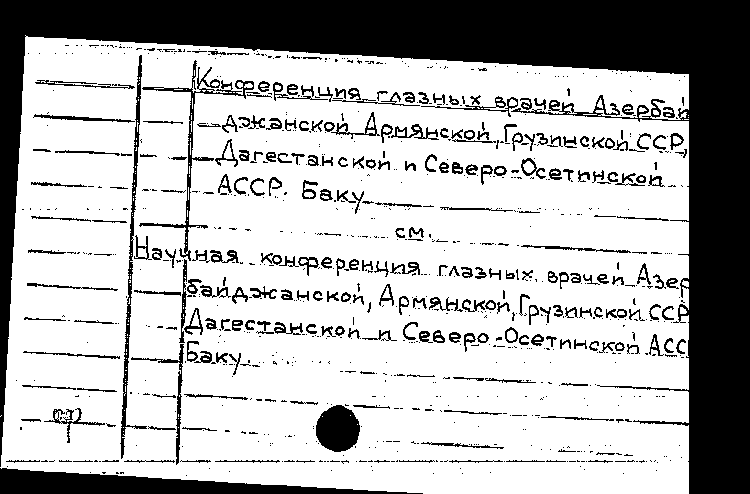 Конференция глазных врачей Азербай
джанской, Армянской, Грузинской ССР,
Дагестанской и Северо-Осетинской
АССР. Баку
см.
Научная конференция глазных врачей Азер
байджанской, Армянской, Грузинской ССР
Дагестанской и Северо-Осетинской АСС
Баку.